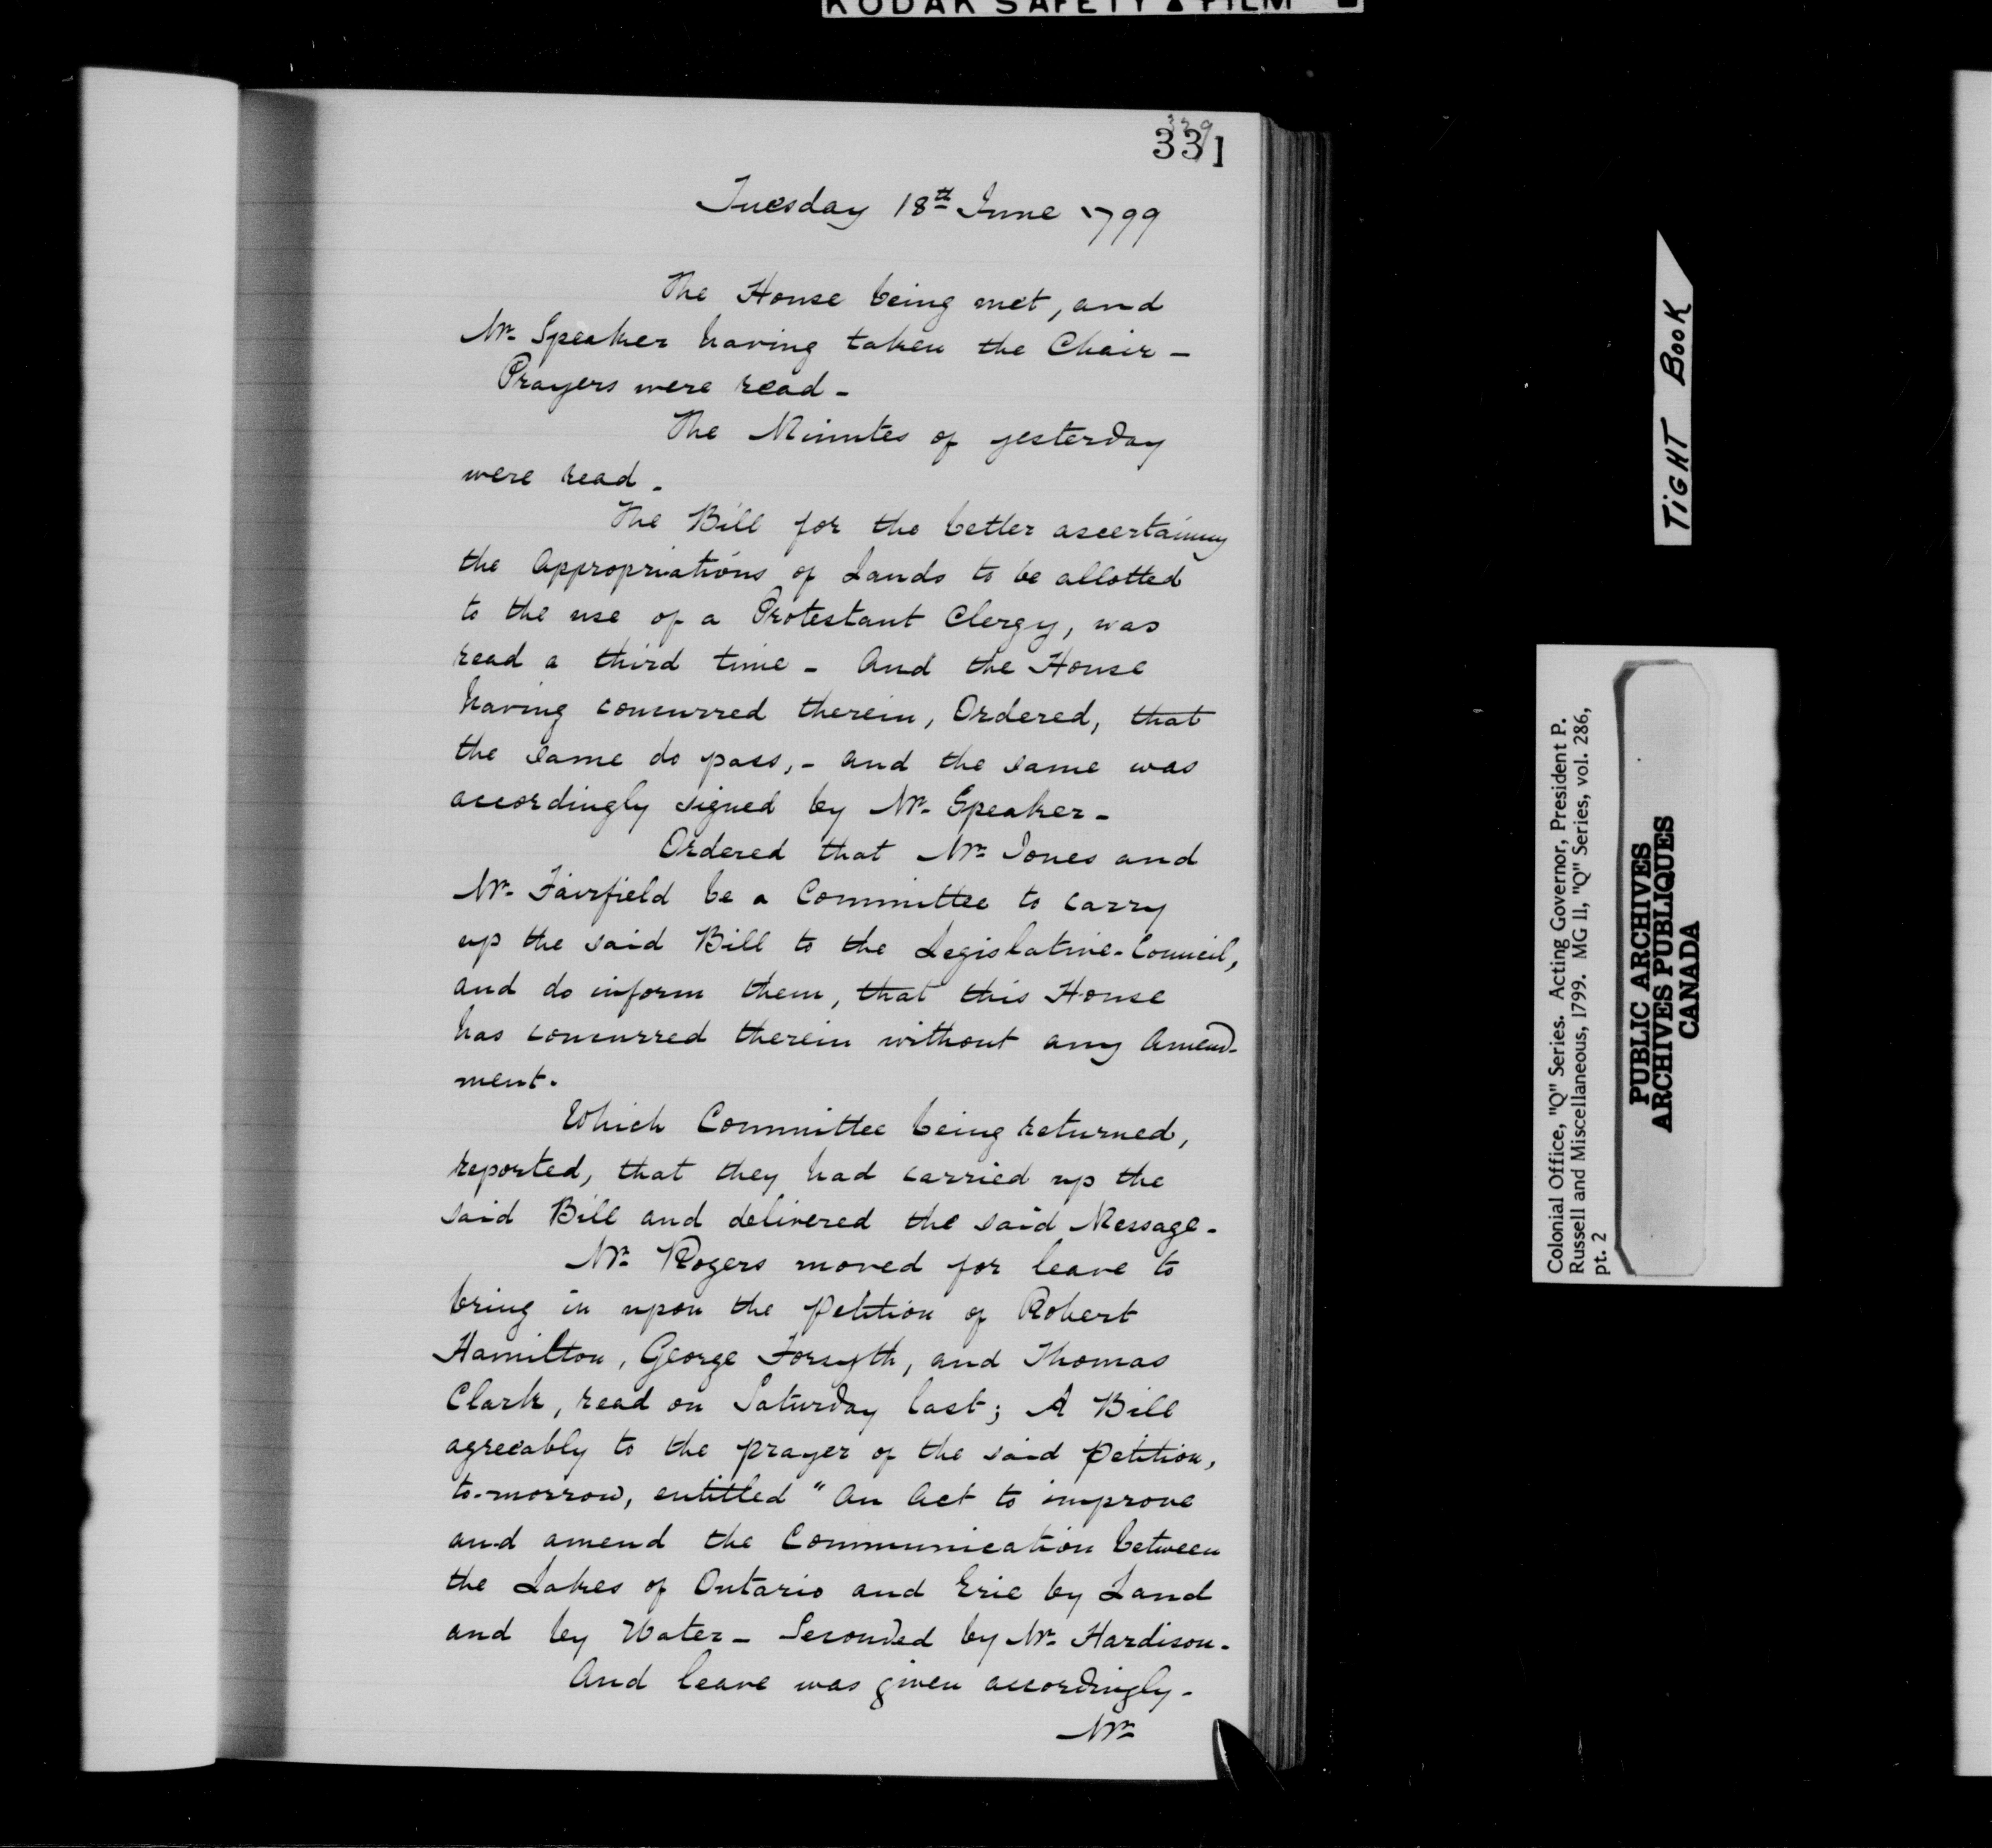 KODAK SAFETY FILM
329
331
Tuesday 18th June 1799
The House being met, and
Mr. Speaker having taken the Chair -
Prayers were read -
The Minutes of yesterday
were read -
The Bill for the better ascertaining
the Appropriations of Lands to be allotted
to the use of a Protestant Clergy, was
read a third time - And the House
having concurred therein, Ordered, that
the same do pass, - and the same was
accordingly signed by Mr. Speaker -
Ordered that Mr. Jones and
Mr. Fairfield be a Committee to carry
up the said Bill to the Legislative-Council,
and do inform them, that this House
has concurred therein without any Amend-
ment.
Which Committee being returned,
reported, that they had carried up the
said Bill and delivered the said Message -
Mr. Rogers moved for leave to
bring in upon the petition of Robert
Hamilton, George Forsyth, and Thomas
Clark, read on Saturday last; A Bill
agreeably to the prayer of the said petition,
to-morrow, entitled "An Act to improve
and amend the Communication between
the Lakes of Ontario and Erie by Land
and by Water - Seconded by Mr. Hardison -
And leave was given accordingly -
Mr.
TIGHT BOOK
Colonial Office, "Q" Series. Acting Governor, President P.
Russell and Miscellaneous, 1799. MG 11, "Q" Series, vol. 286,
pt. 2
PUBLIC ARCHIVES
ARCHIVES PUBLIQUES
CANADA